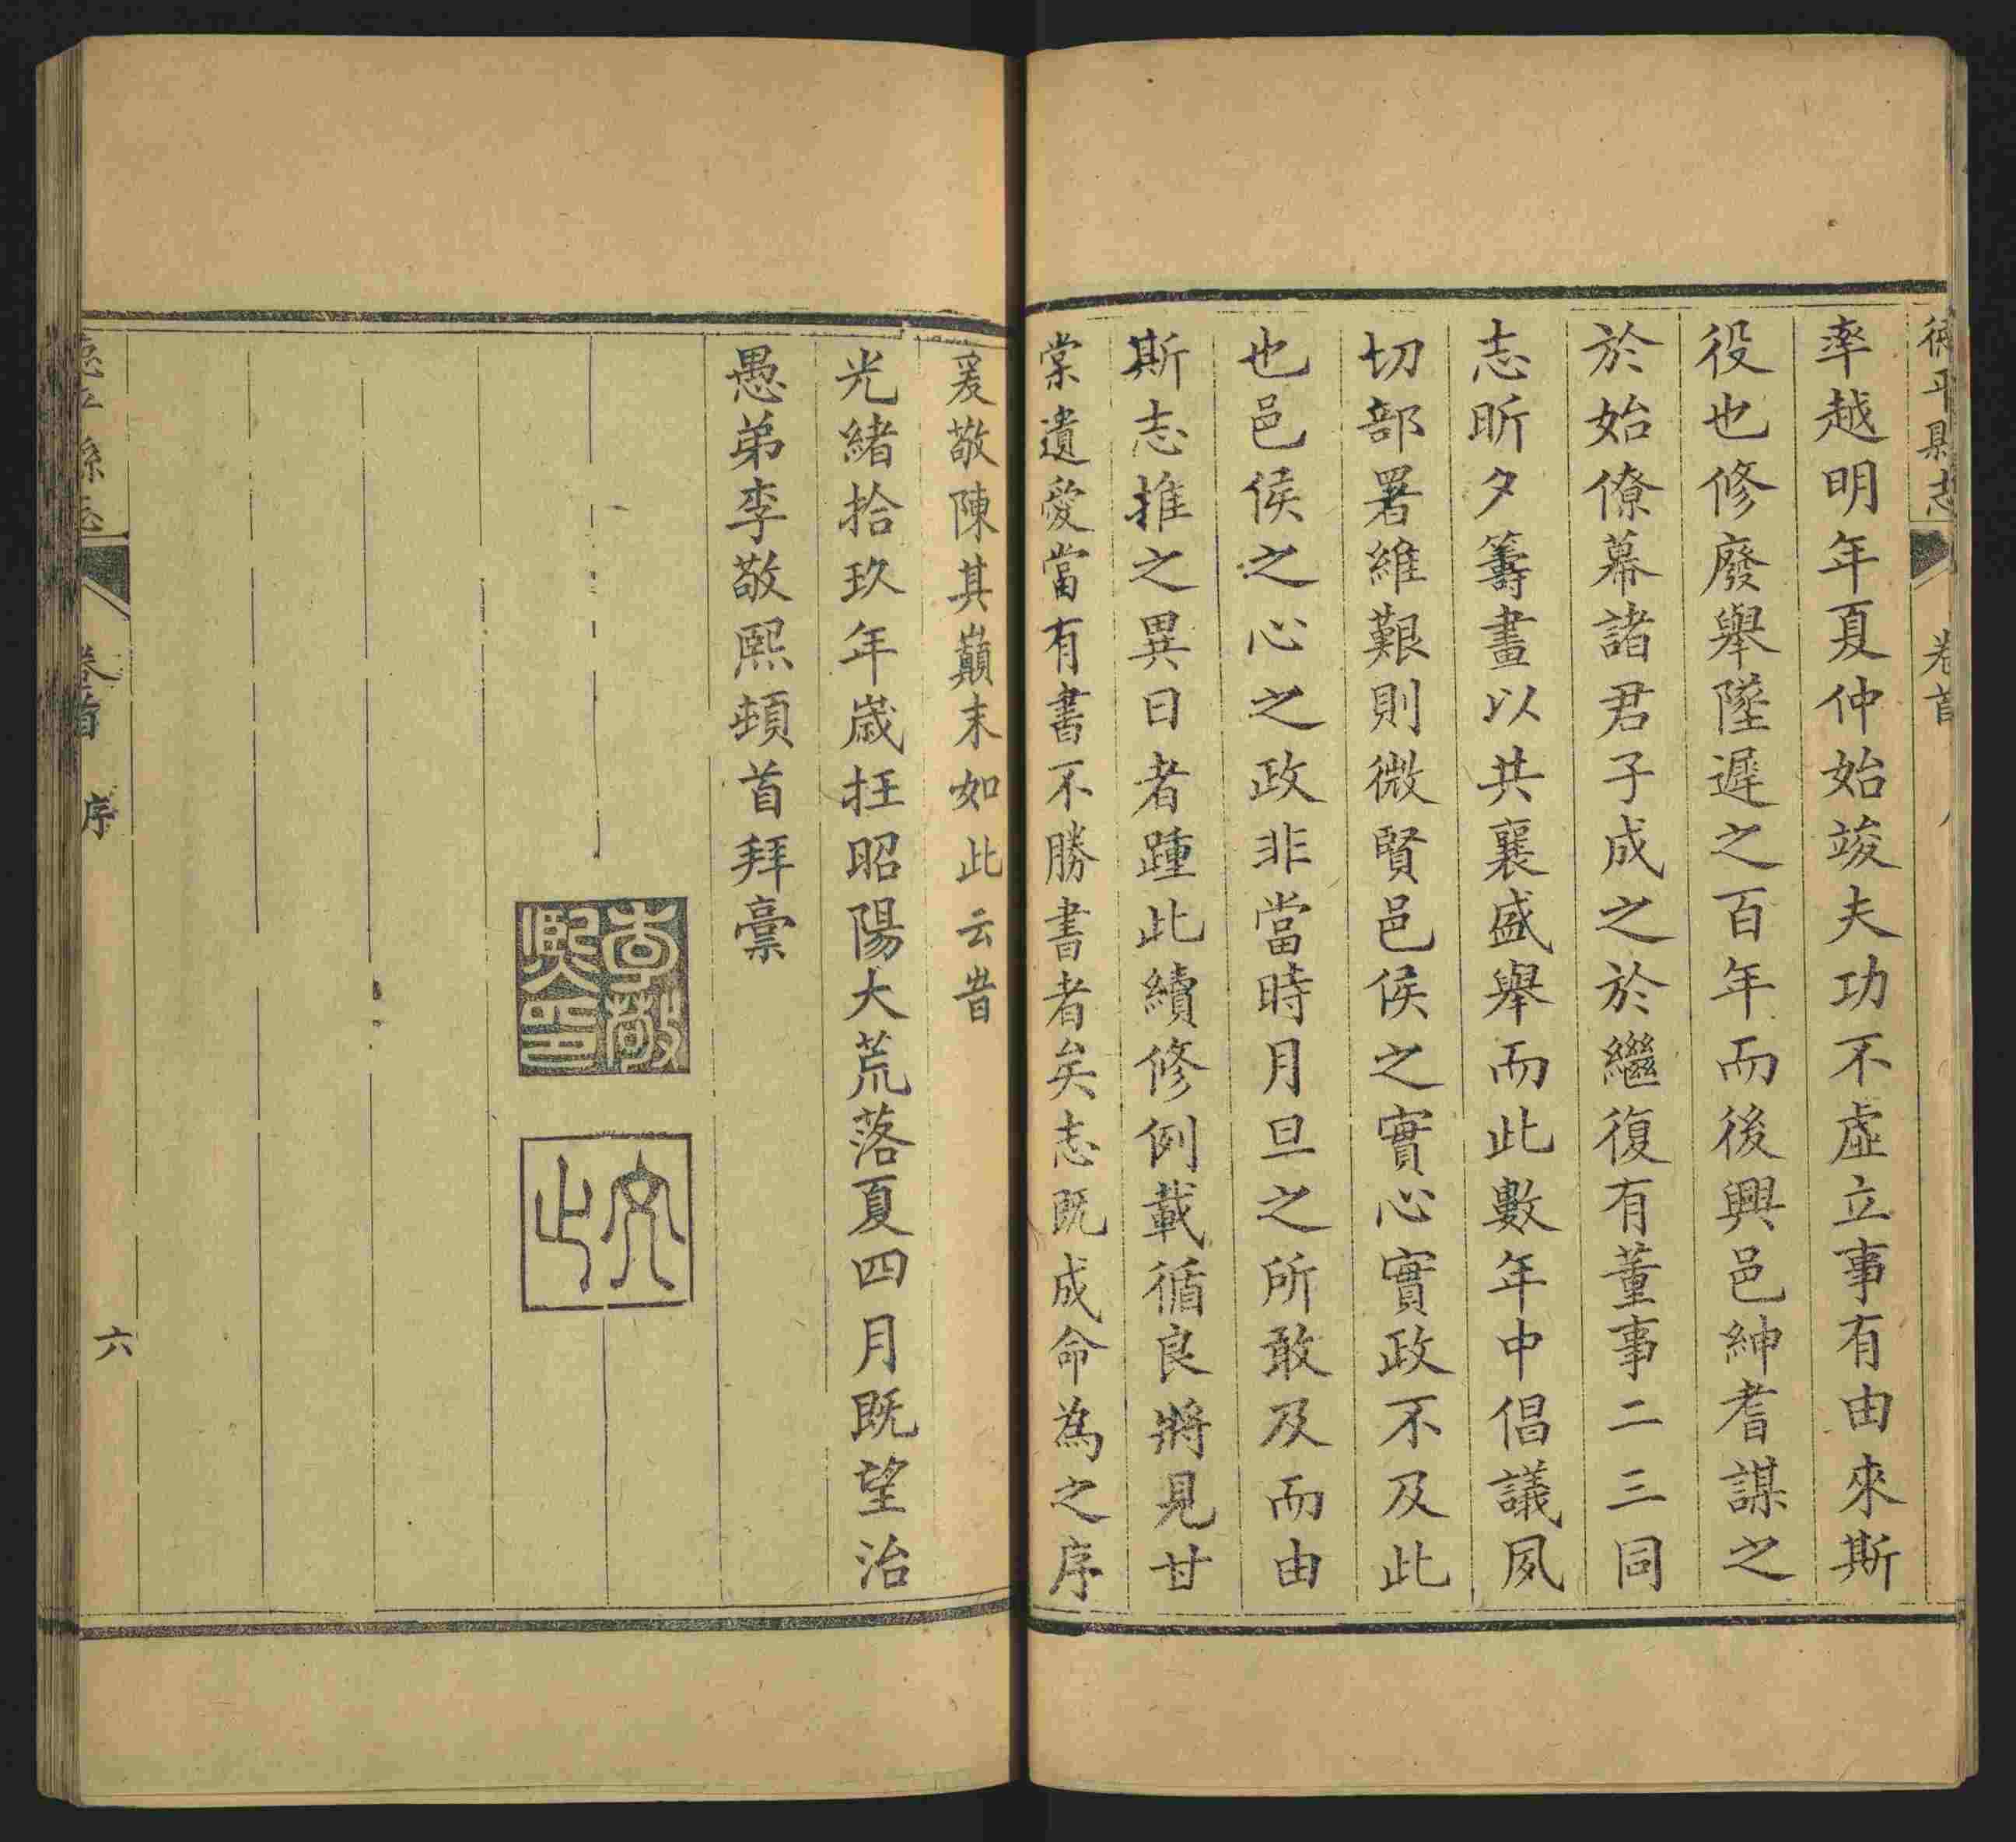 德平縣志
卷首
率越明年夏仲始竣夫功不虛立事有由來斯
役也修廢舉墜遲之百年而後興邑紳耆謀之
於始僚幕諸君子成之於繼復有董事二三同
志昕夕籌畫以共襄盛舉而此數年中倡議夙
切部署維艱則微賢邑侯之實心實政不及此
也邑侯之心之政非當時月旦之所敢及而由
斯志推之異日者踵此續修例載循良將見甘
棠遺愛當有書不勝書者矣志既成命為之序
爰敬陳其巔末如此云昔
光緒拾玖年歲在昭陽大荒落夏四月既望治
愚弟李敬熙頓首拜稾
李敬熙印
文止
德平縣志
卷首
序
六